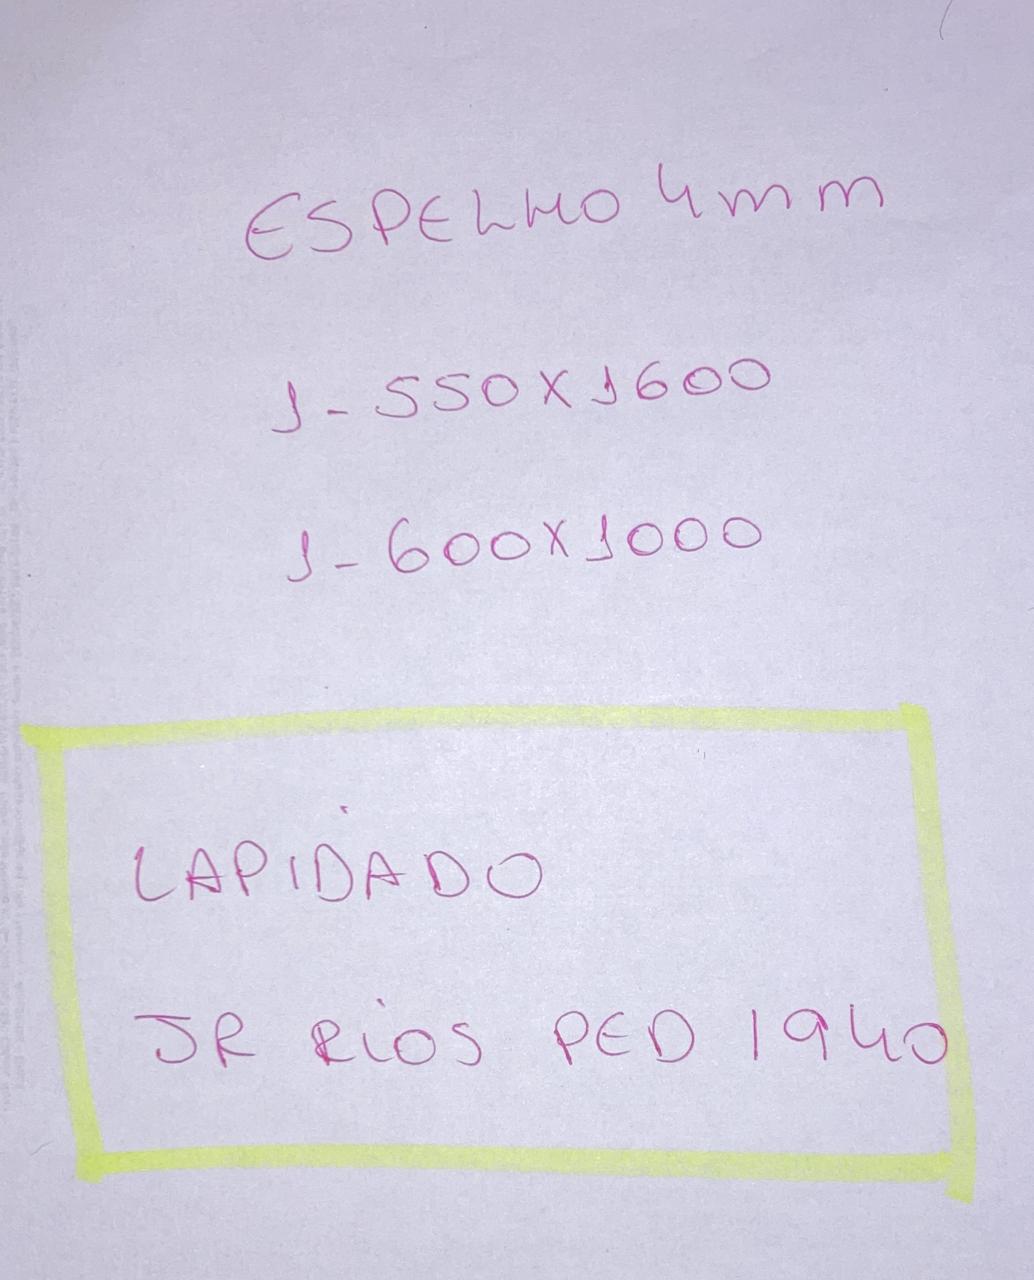 ESPELHO 4mm
1-550X1600
1-600X1000
LAPIDADO
JR RIOS PED 1940